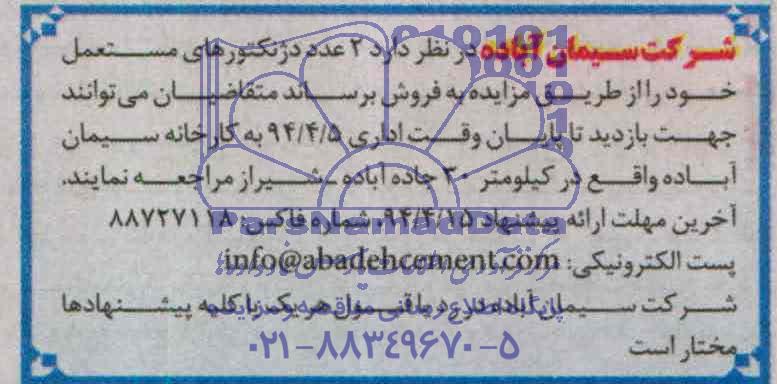 شرکت سیمان آباده در نظر دارد ۲ عدد دژنکتورهای مستعمل
خود را از طریق مزایده به فروش برساند متقاضیان می‌توانند
جهت بازدید تا پایان وقت اداری ۹۴/۴/۵ به کارخانه سیمان
آباده واقع در کیلومتر ۳۰ جاده آباده ـ شیراز مراجعه نمایند.
آخرین مهلت ارائه پیشنهاد ۹۴/۴/۱۵. شماره فاکس: ۸۸۷۲۷۱۱۸
پست الکترونیکی: info@abadehcement.com
شرکت سیمان آباده در رد یا قبول هر یک یا کلیه پیشنهادها
مختار است
ParsNamadData
پایگاه اطلاع رسانی مناقصه و مزایده
۰۲۱-۸۸۳۴۹۶۷۰-۵